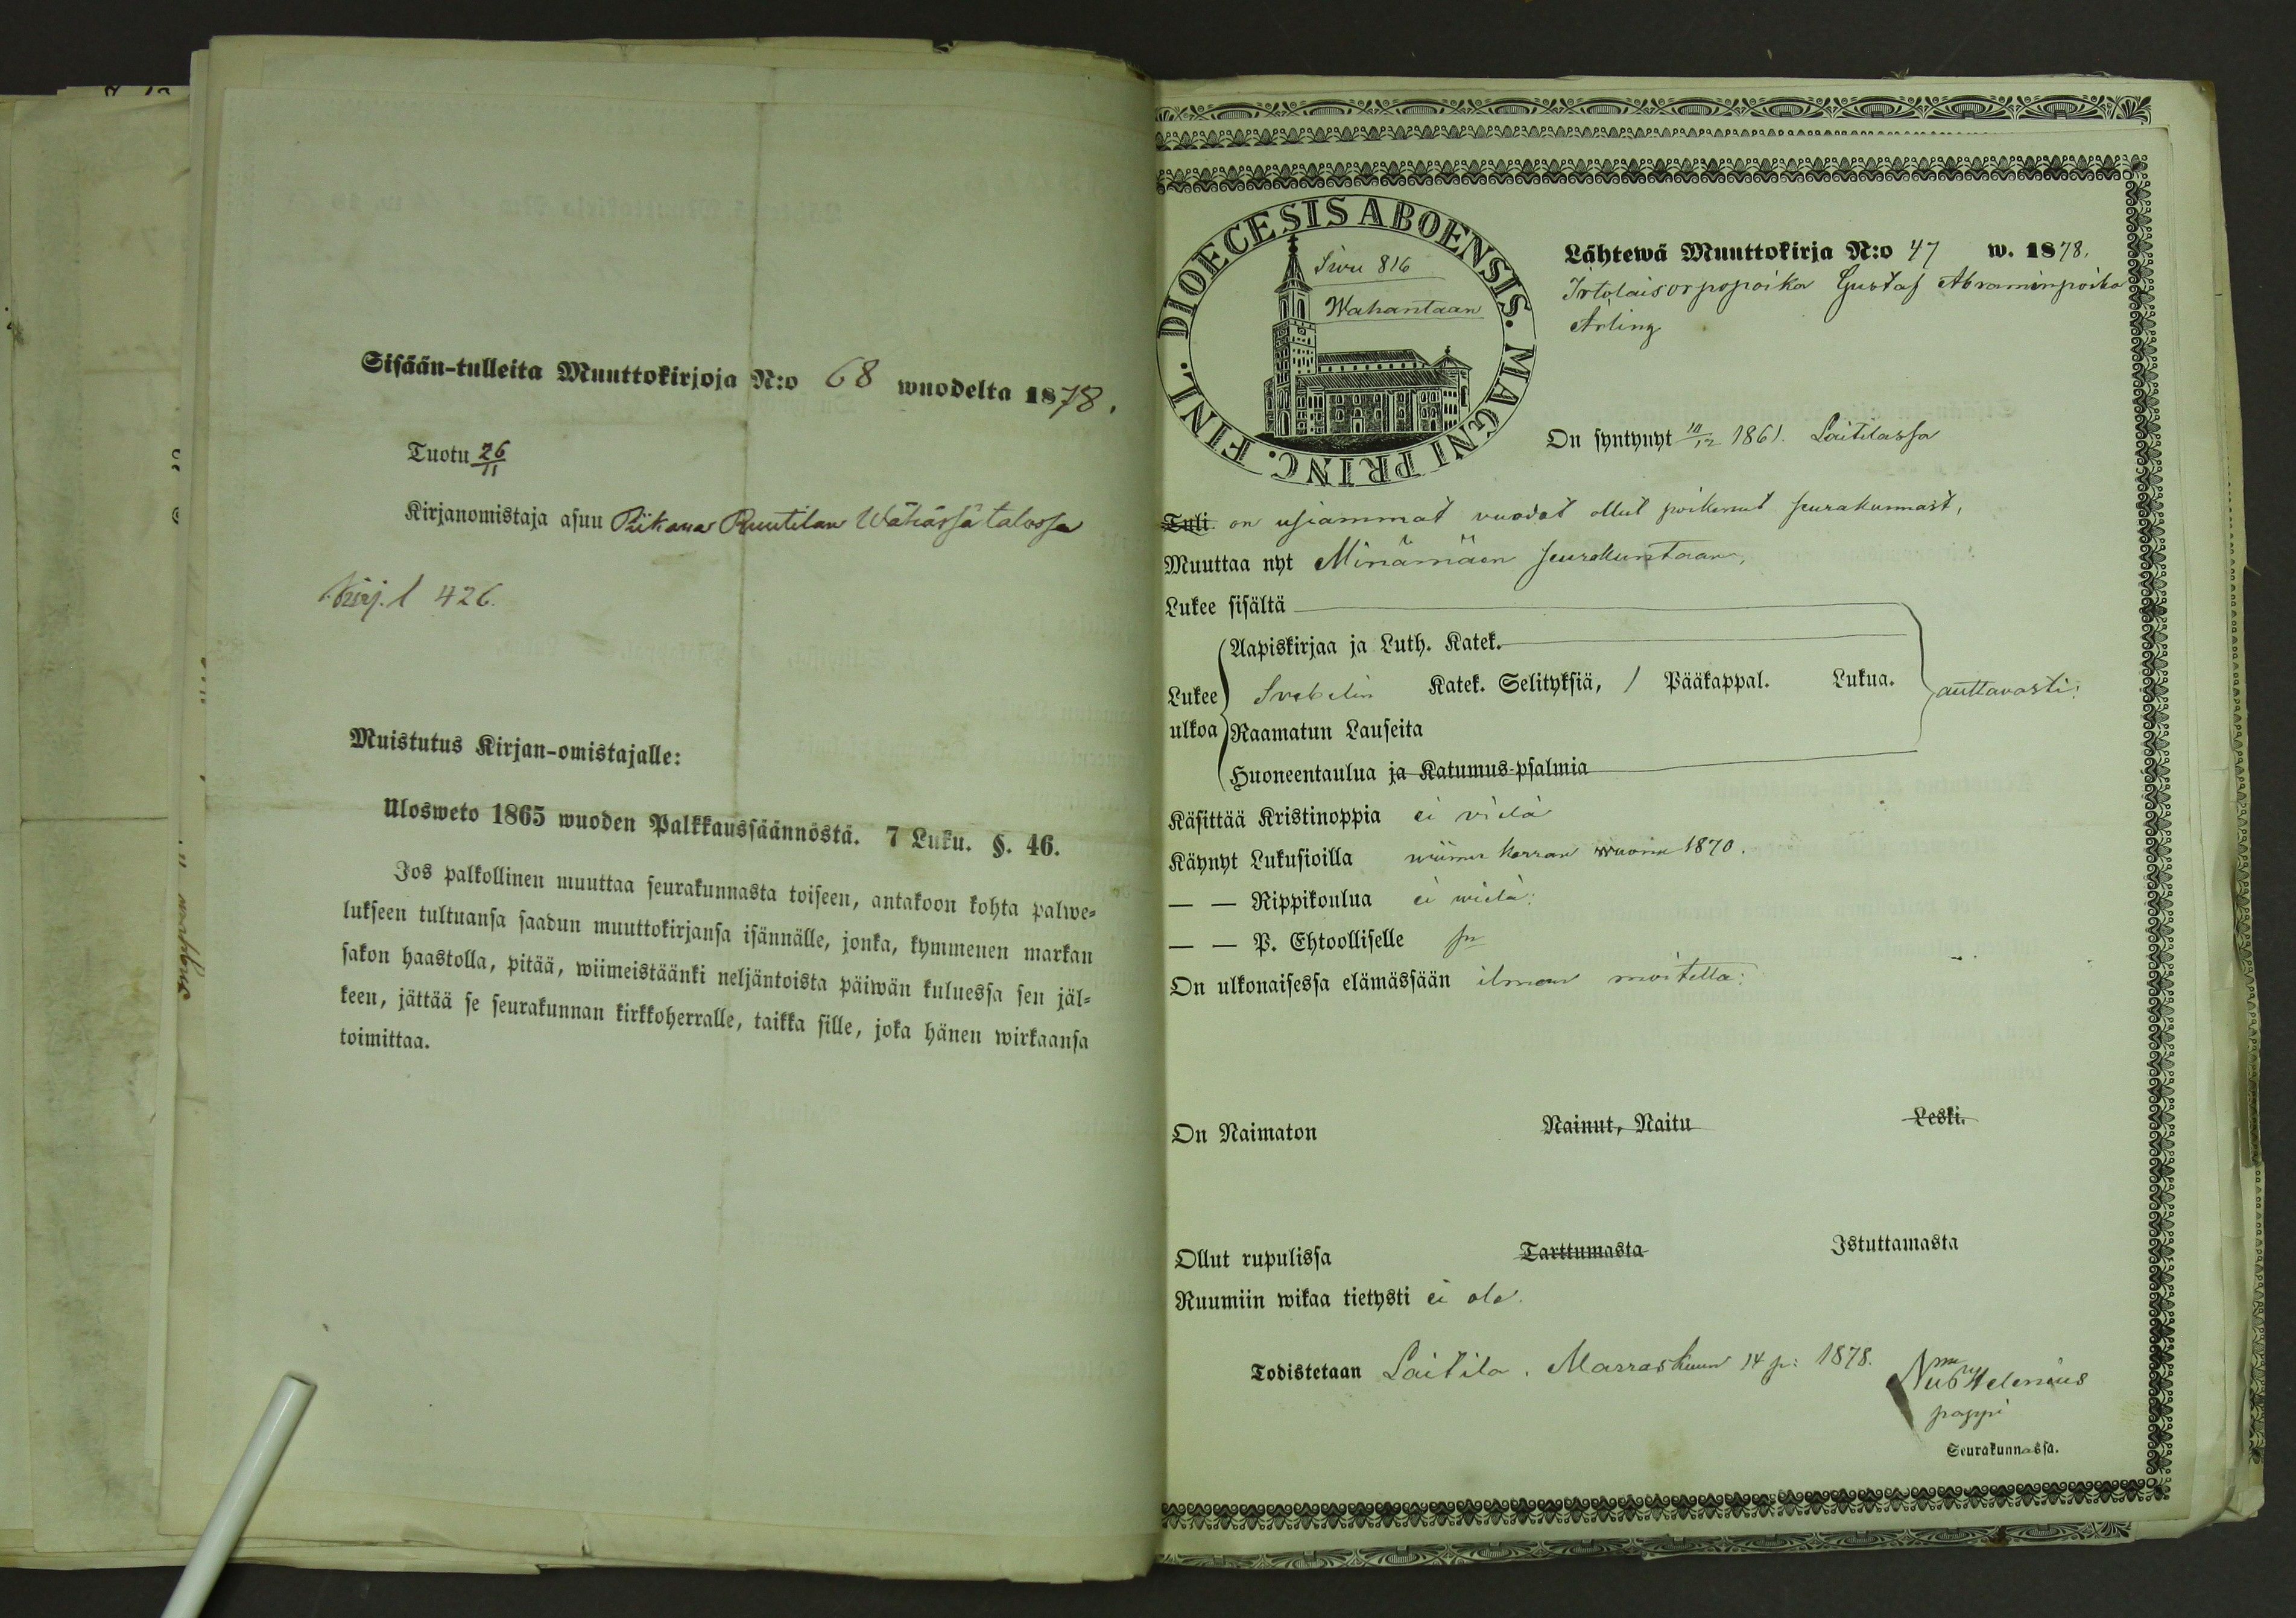 Sisään-tulleita Muuttokirjoja N:o 68 wuodelta 1878.
Tuotu 26/11
Kirjanomistaja asuu Piikana Ruutilan Wähässä talossa
Kirj. l 426.
Muistutus Kirjan-omistajalle:
Ulosweto 1865 wuoden Palkkaussäännöstä. 7 Luku. §. 46.
Jos palkollinen muuttaa seurakunnasta toiseen, antakoon kohta palwe-
lukseen tultuansa saadun muuttokirjansa isännälle, jonka, kymmenen markan
sakon haastolla, pitää, wiimeistäänki neljäntoista päiwän kuluessa sen jäl-
keen, jättää se seurakunnan kirkkoherralle, taikka sille, joka hänen wirkaansa
toimittaa.
FINL. DIOECESIS ABOENSIS. MAGNI PRINC.
Siwu 816
Wahantaan
Lähtewä Muuttokirja N:o 47 w. 1878.
Irtolaisorpopoika Gustaf Abraminpoika
Arling
On syntynyt 10/12 1861. Laitilassa
Tuli on usiammat vuodet ollut poikennut seurakunnast,
Muuttaa nyt Minämäen seurakuntaan,
Lukee sisältä
Aapiskirjaa ja Luth. Katek.
Lukee ulkoa Svebelin Katek. Selityksiä, 1 Pääkappal. Lukua. auttavasti:
Raamatun Lauseita
Huoneentaulua ja Katumus-psalmia
Käsittää Kristinoppia ei vielä
Käynyt Lukusioilla wiimes kerran wuonn 1870.
— — Rippikoulua ei wielä:
— — P. Ehtoolliselle
On ulkonaisessa elämässään ilman moitetta:
On Naimaton Nainut, Naitu Leski.
Ollut rupulissa Tarttumasta Istuttamasta
Ruumiin wikaa tietysti ei ole.
Todistetaan Laitila. Marraskuun 14 p: 1878.
Helenius
pappi
Seurakunnassa.